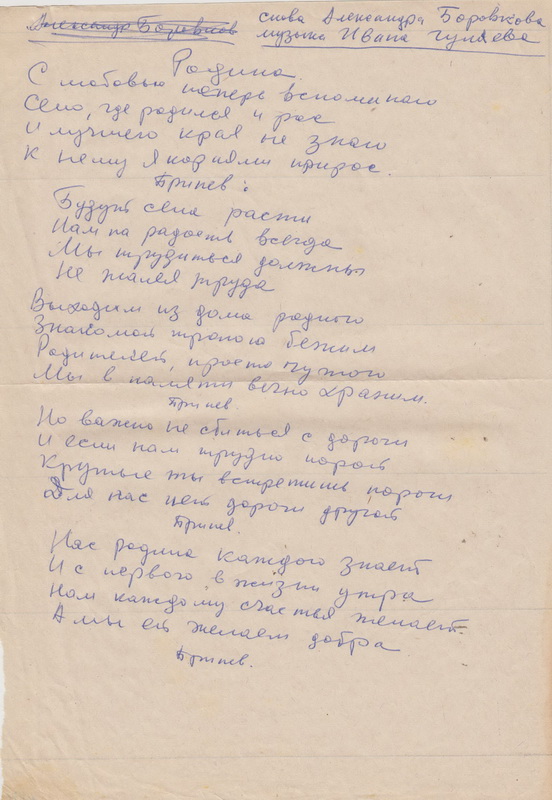 Александр Боровков
слова Александра Боровкова
музыка Ивана Гуляева
Родина.
С любовью теперь вспоминаю
Село, где родился и рос
И лучшего края не знаю
К нему я корнями прирос.
Припев:
Будут села расти
Нам на радость всегда
Мы трудиться должны
Не жалея труда
Выходим из дома родного
Знакомой тропою бежим
Родителей, просто чужого
Мы в памяти вечно храним.
Припев.
Но важно не сбиться с дороги
И если нам трудно порой
Крутые ты встретишь пороги
Для нас нет дороги другой
Припев.
Нас родина каждого знает
И с первого в жизни утра
Нам каждому счастья желает.
А мы ей желаем добра
Припев.